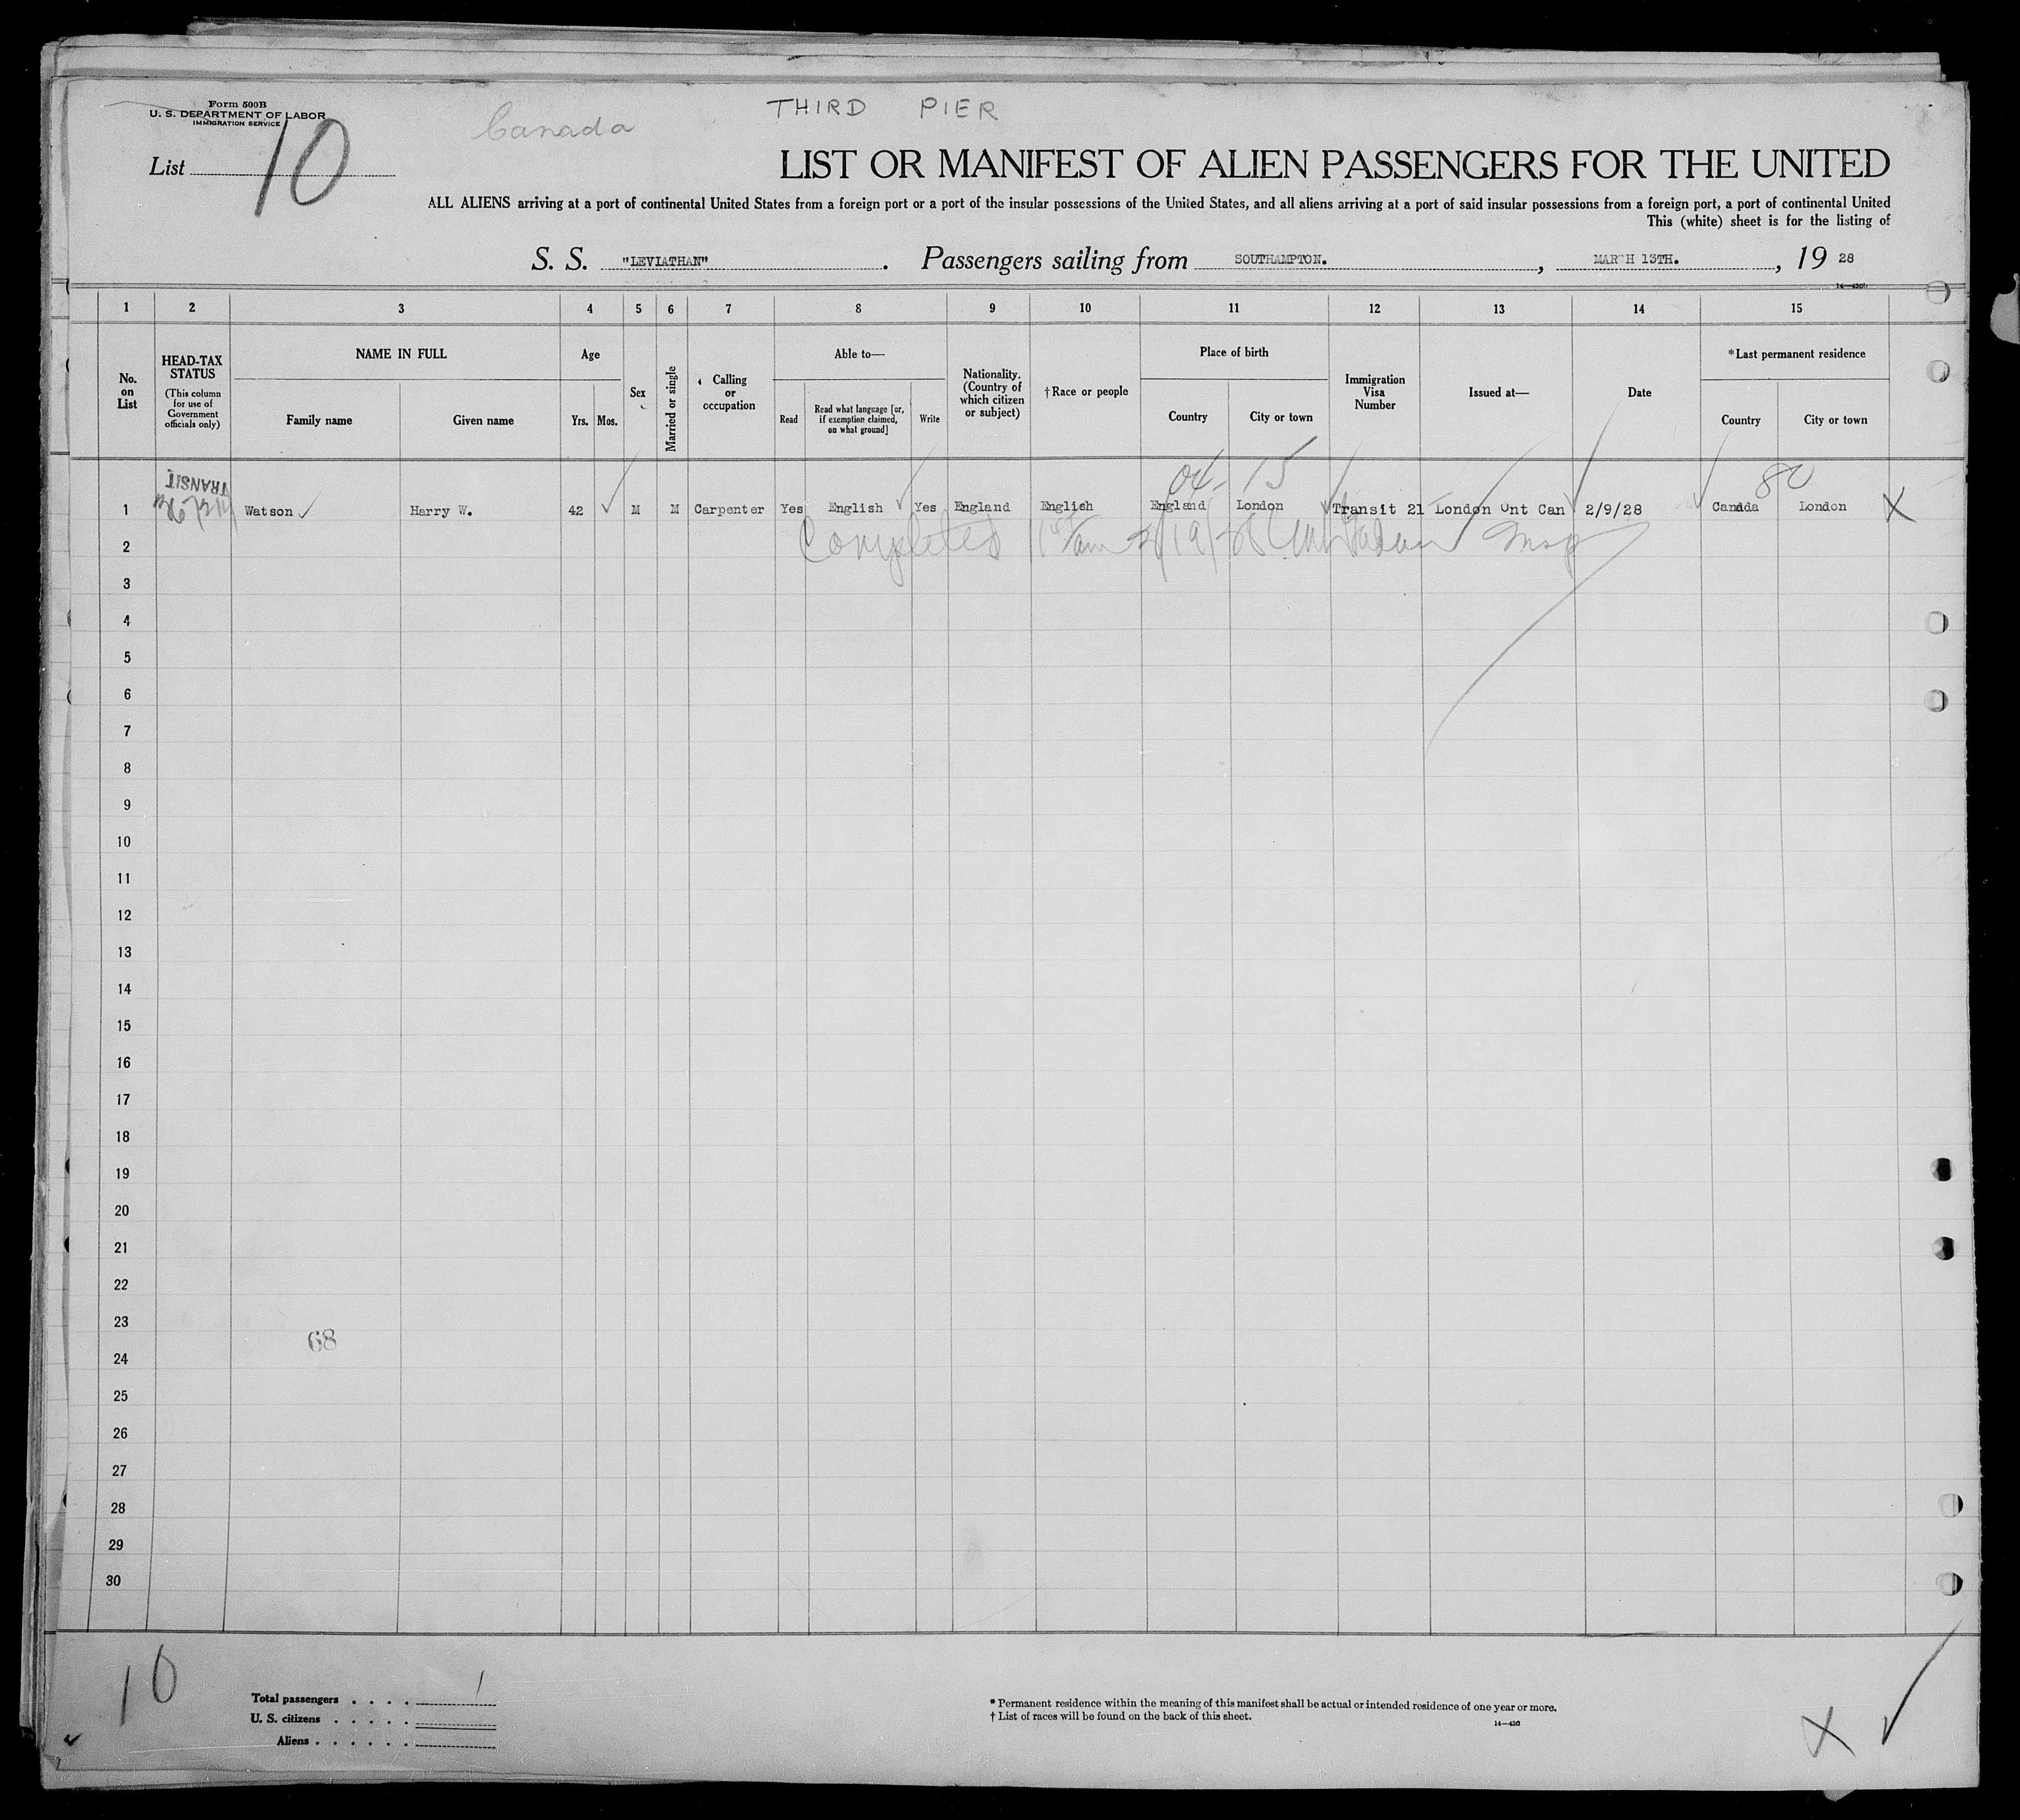 Form 500B
U. S. DEPARTMENT OF LABOR
IMMIGRATION SERVICE
Canada
THIRD PIER
List 10
LIST OR MANIFEST OF ALIEN PASSENGERS FOR THE UNITED
ALL ALIENS arriving at a port of continental United States from a foreign port or a port of the insular possessions of the United States, and all aliens arriving at a port of said insular possessions from a foreign port, a port of continental United
This (white) sheet is for the listing of
S. S. "LEVIATHAN". Passengers sailing from SOUTHAMPTON., MARCH 13TH., 19 28
14—430b
1 2 3 4 5 6 7 8 9 10 11 12 13 14 15
No. on List
HEAD-TAX STATUS
(This column for use of Government officials only)
NAME IN FULL
Family name Given name
Age
Yrs. Mos.
Sex
Married or single
Calling or occupation
Able to—
Read Read what language [or, if exemption claimed, on what ground] Write
Nationality. (Country of which citizen or subject)
†Race or people
Place of birth
Country City or town
Immigration Visa Number
Issued at—
Date
*Last permanent residence
Country City or town
TRANSIT
04- 15 80
1 Watson Harry W. 42 M M Carpenter Yes English Yes England English England London Transit 21 London Ont Can 2/9/28 Canada London X
2 Completed
3
4
5
6
7
8
9
10
11
12
13
14
15
16
17
18
19
20
21
22
23
68
24
25
26
27
28
29
30
10
Total passengers . . . . 1
U. S. citizens . . . . .
Aliens . . . . . .
* Permanent residence within the meaning of this manifest shall be actual or intended residence of one year or more.
† List of races will be found on the back of this sheet.
14—430
X